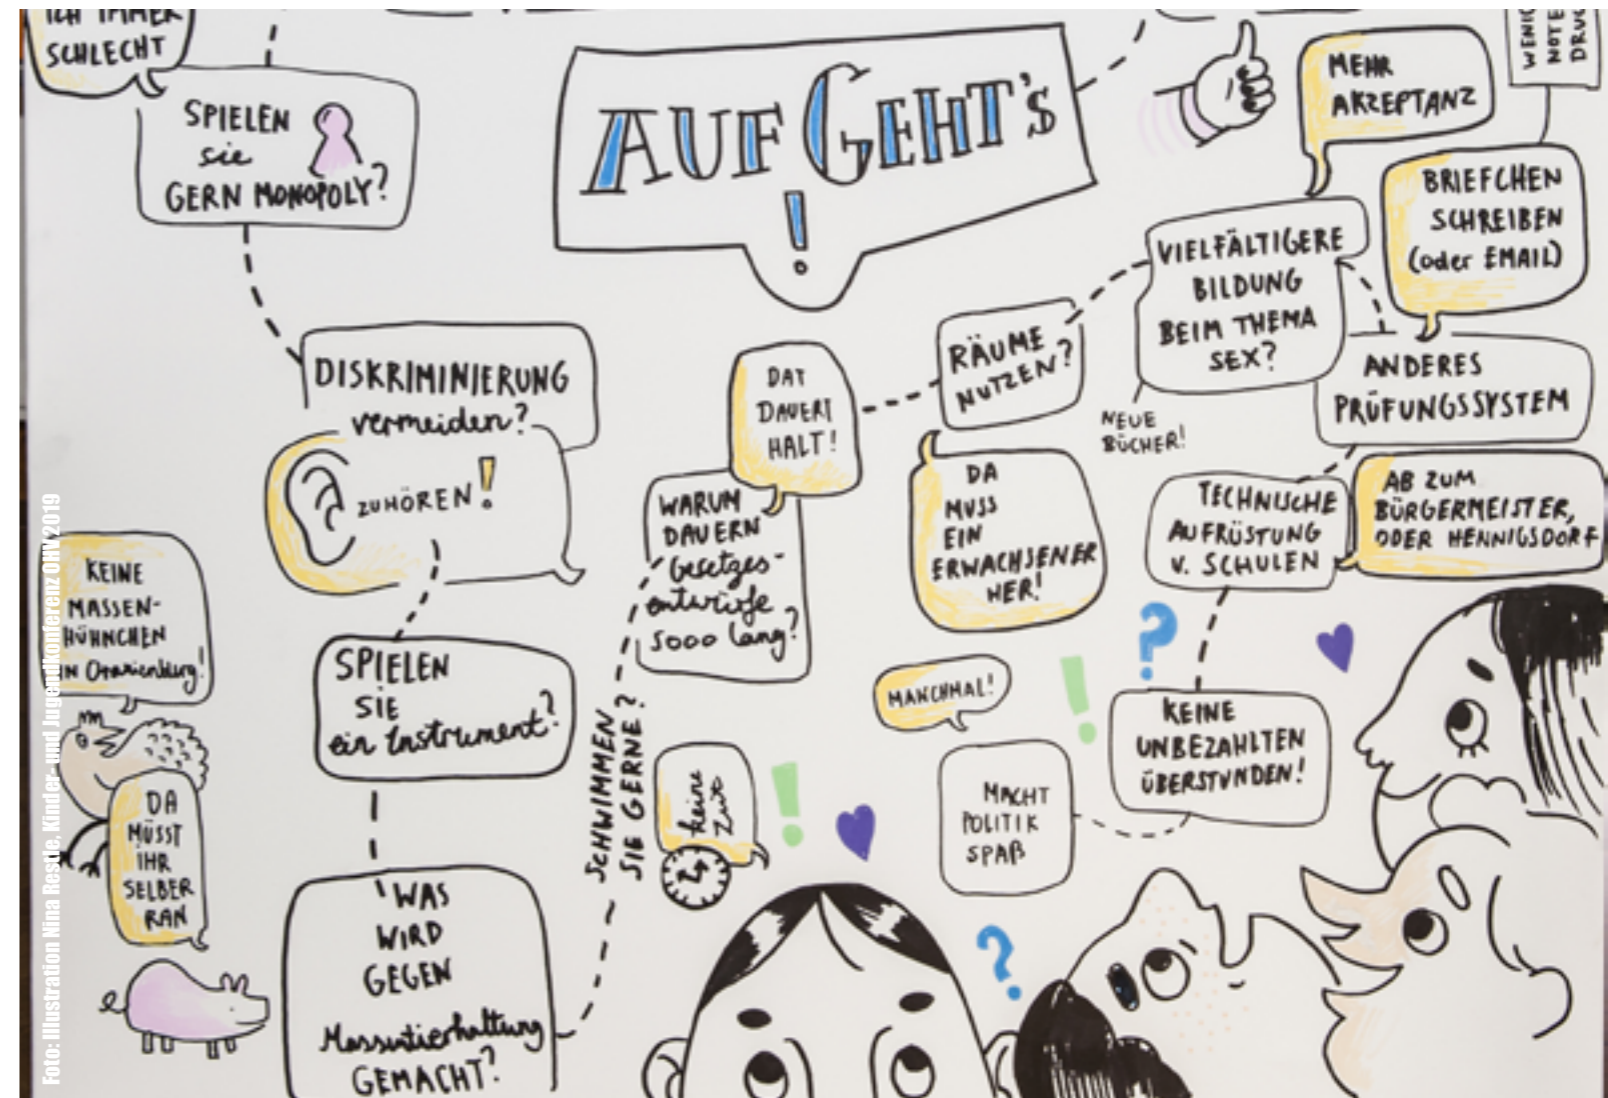 ICH IMMER
SCHLECHT
SPIELEN
sie
GERN MONOPOLY?
AUF GEHT'S
!
MEHR
AKZEPTANZ
WENIG
NOTE
DRUC
BRIEFCHEN
SCHREIBEN
(oder EMAIL)
VIELFÄLTIGERE
BILDUNG
BEIM THEMA
SEX?
NEUE
BÜCHER!
ANDERES
PRÜFUNGSSYSTEM
RÄUME
NUTZEN?
DAT
DAUERT
HALT!
DISKRIMINIERUNG
vermeiden?
ZUHÖREN!
WARUM
DAUERN
Gesetzes-
entwürfe
sooo lang?
DA
MUSS
EIN
ERWACHSENER
HER!
TECHNISCHE
AUFRÜSTUNG
V. SCHULEN
AB ZUM
BÜRGERMEISTER,
ODER HENNIGSDORF
KEINE
MASSEN-
HÜHNCHEN
IN Oranienburg!
SPIELEN
SIE
ein Instrument?
SCHWIMMEN
SIE GERNE?
MANCHMAL!
!
?
KEINE
UNBEZAHLTEN
ÜBERSTUNDEN!
keine
Zeit
!
MACHT
POLITIK
SPAß
DA
MÜSST
IHR
SELBER
RAN
WAS
WIRD
GEGEN
Massentierhaltung
GEMACHT?
?
Foto: Illustration Nina Restle, Kinder- und Jugendkonferenz OHV 2019